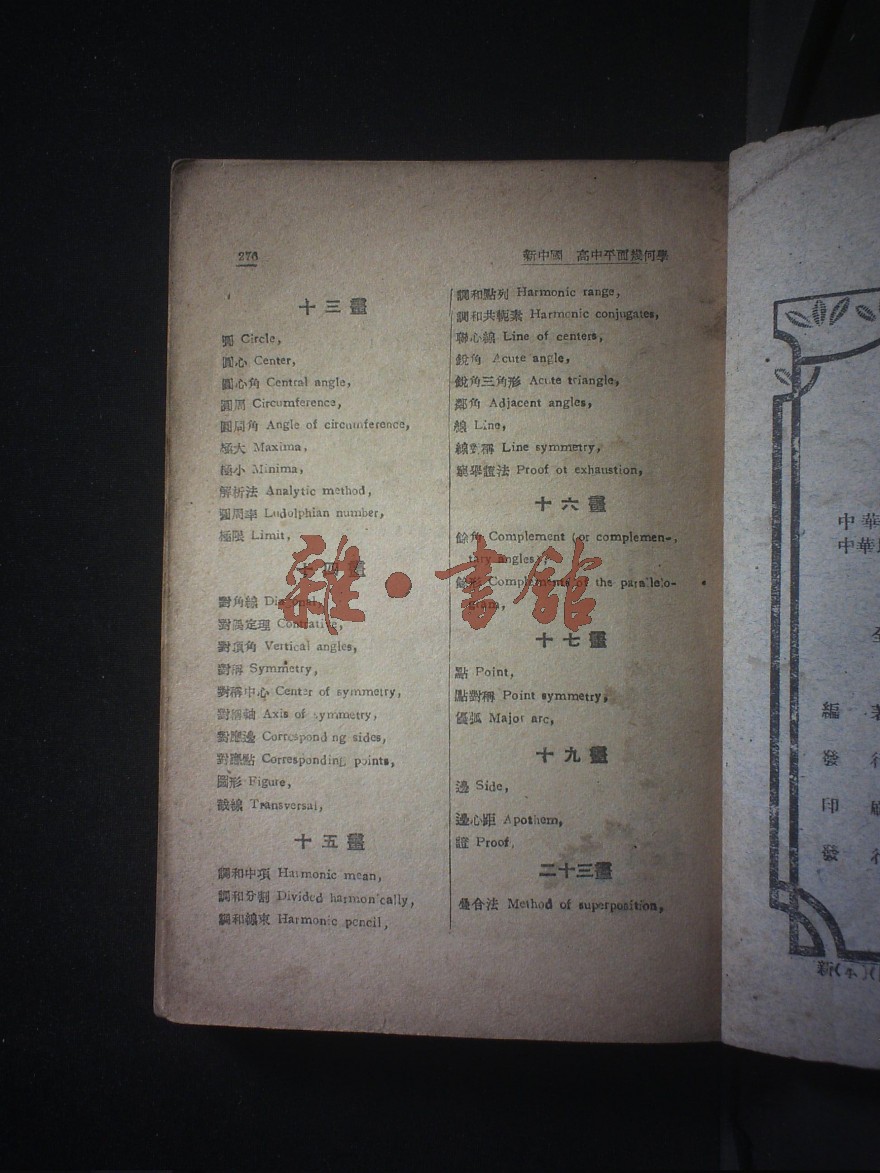 276
新中國　高中平面幾何學
十三畫
圓 Circle,
圓心 Center,
圓心角 Central angle,
圓周 Circumference,
圓周角 Angle of circumference,
極大 Maxima,
極小 Minima,
解析法 Analytic method,
圓周率 Ludolphian number,
極限 Limit,
十四畫
對角線 Diagonal,
對偶定理 Contrative,
對頂角 Vertical angles,
對稱 Symmetry,
對稱中心 Center of symmetry,
對稱軸 Axis of symmetry,
對應邊 Corresponding sides,
對應點 Corresponding points,
圖形 Figure,
截線 Transversal,
十五畫
調和中項 Harmonic mean,
調和分割 Divided harmonically,
調和線束 Harmonic pencil,
調和點列 Harmonic range,
調和共軛素 Harmonic conjugates,
聯心線 Line of centers,
銳角 Acute angle,
銳角三角形 Acute triangle,
鄰角 Adjacent angles,
線 Line,
線對稱 Line symmetry,
窮舉證法 Proof ot exhaustion,
十六畫
餘角 Complement (or complemen-,
tary angles),
餘形 Complements of the parallelo-
gram,
十七畫
點 Point,
點對稱 Point symmetry,
優弧 Major arc,
十九畫
邊 Side,
邊心距 Apothem,
證 Proof,
二十三畫
疊合法 Method of superposition,
雜·書館
中華
中華
編
發行
印
發行